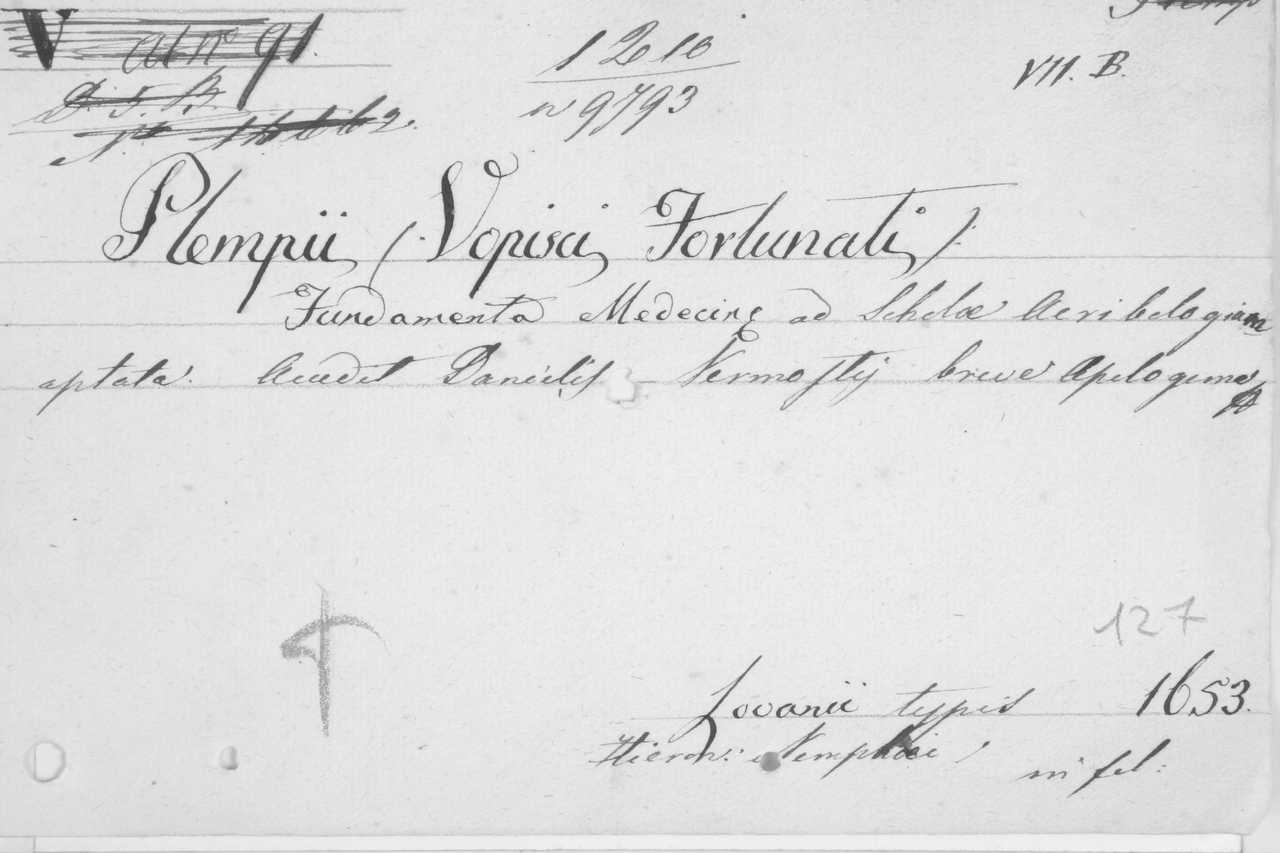 V at nº 91.
1210
VII. B.
D. 5. B
n 9793
Plempii (Vopisci Fortunati)
Fundamenta Medecinę ad Scholæ Acribologiam
aptata. Accedit Danielis Vermostij breve Apologema
127
Lovanii typis 1653.
Hieron: Nempæi in fol: